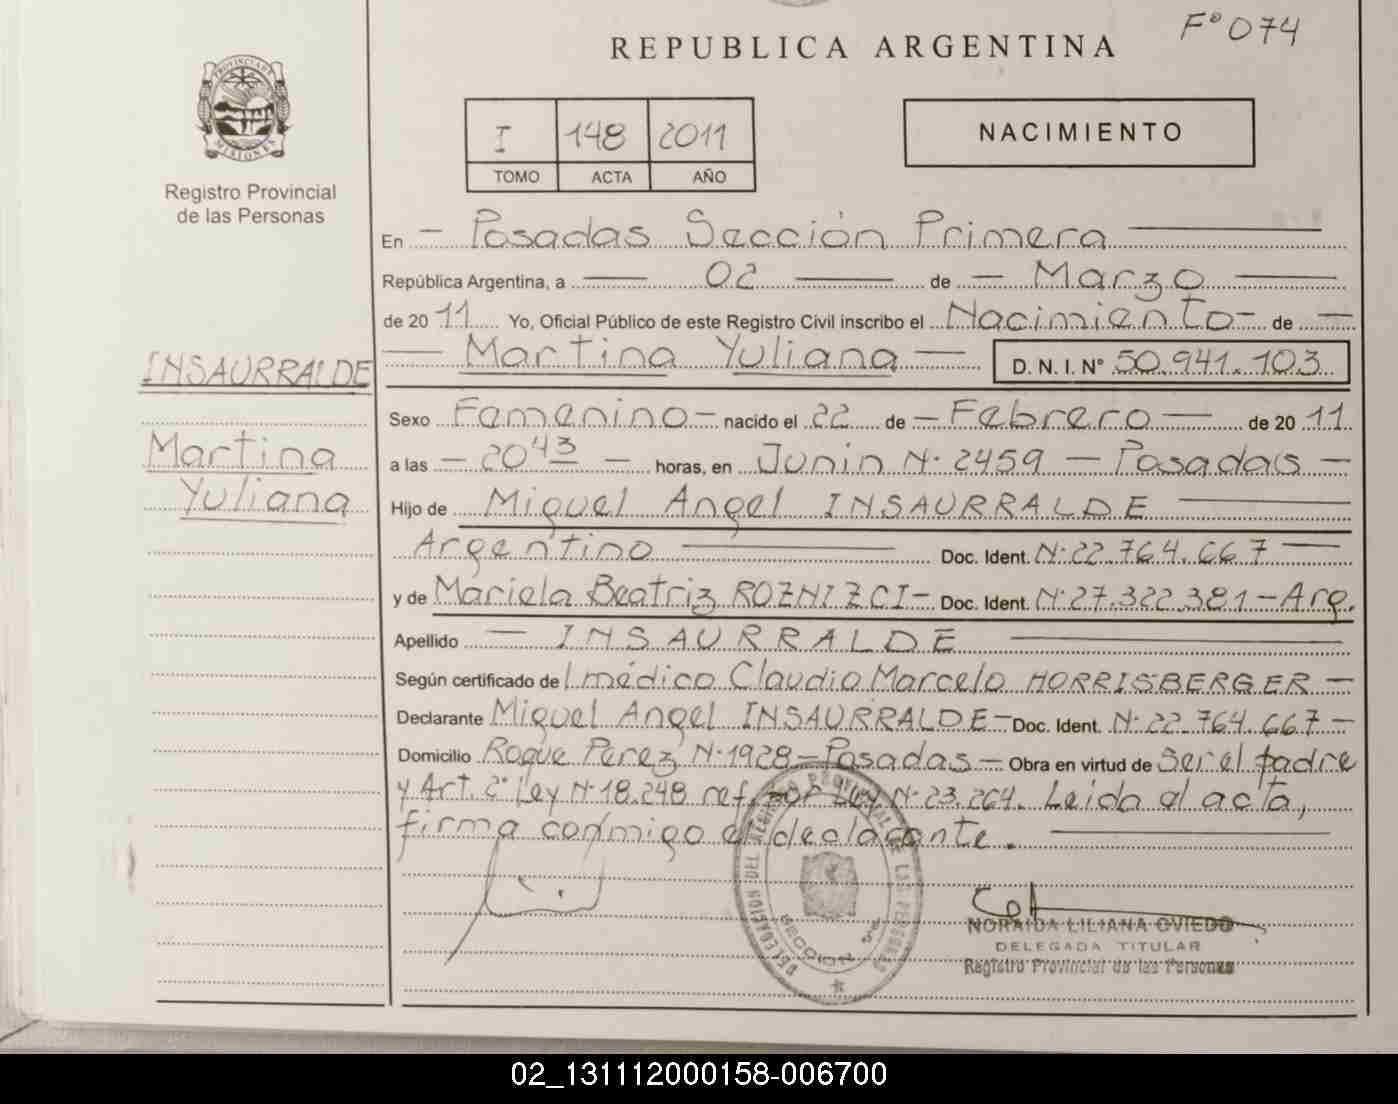 Fº 074
REPUBLICA ARGENTINA
PROVINCIA DE
MISIONES
Registro Provincial
de las Personas
I 148 2011
TOMO ACTA AÑO
NACIMIENTO
En — Posadas Sección Primera —
República Argentina, a — 02 — de — Marzo —
de 20 11 Yo, Oficial Público de este Registro Civil inscribo el Nacimiento — de —
— Martina Yuliana — D. N. I. Nº 50.941.103
INSAURRALDE
Martina
Yuliana
Sexo Femenino — nacido el 22 de — Febrero — de 20 11
a las — 20 43 — horas, en Junin N· 2459 — Posadas —
Hijo de Miguel Angel INSAURRALDE —
Argentino — Doc. Ident. N· 22.764.667 —
y de Mariela Beatriz ROZNIZCI — Doc. Ident. N· 27.322.381 — Arg.
Apellido — INSAURRALDE —
Según certificado del médico Claudio Marcelo HORRISBERGER —
Declarante Miguel Angel INSAURRALDE — Doc. Ident. N· 22.764.667 —
Domicilio Roque Perez N· 1928 — Posadas — Obra en virtud de ser el padre
y Art. 2º Ley N· 18.248 ref. por Ley N· 23.264. Leida el acta,
firma conmigo el declarante. —
DELEGACION DEL REGISTRO PROVINCIAL DE LAS PERSONAS
SECCION 1ra
NORAIDA LILIANA OVIEDO
DELEGADA TITULAR
Registro Provincial de las Personas
02_131112000158-006700